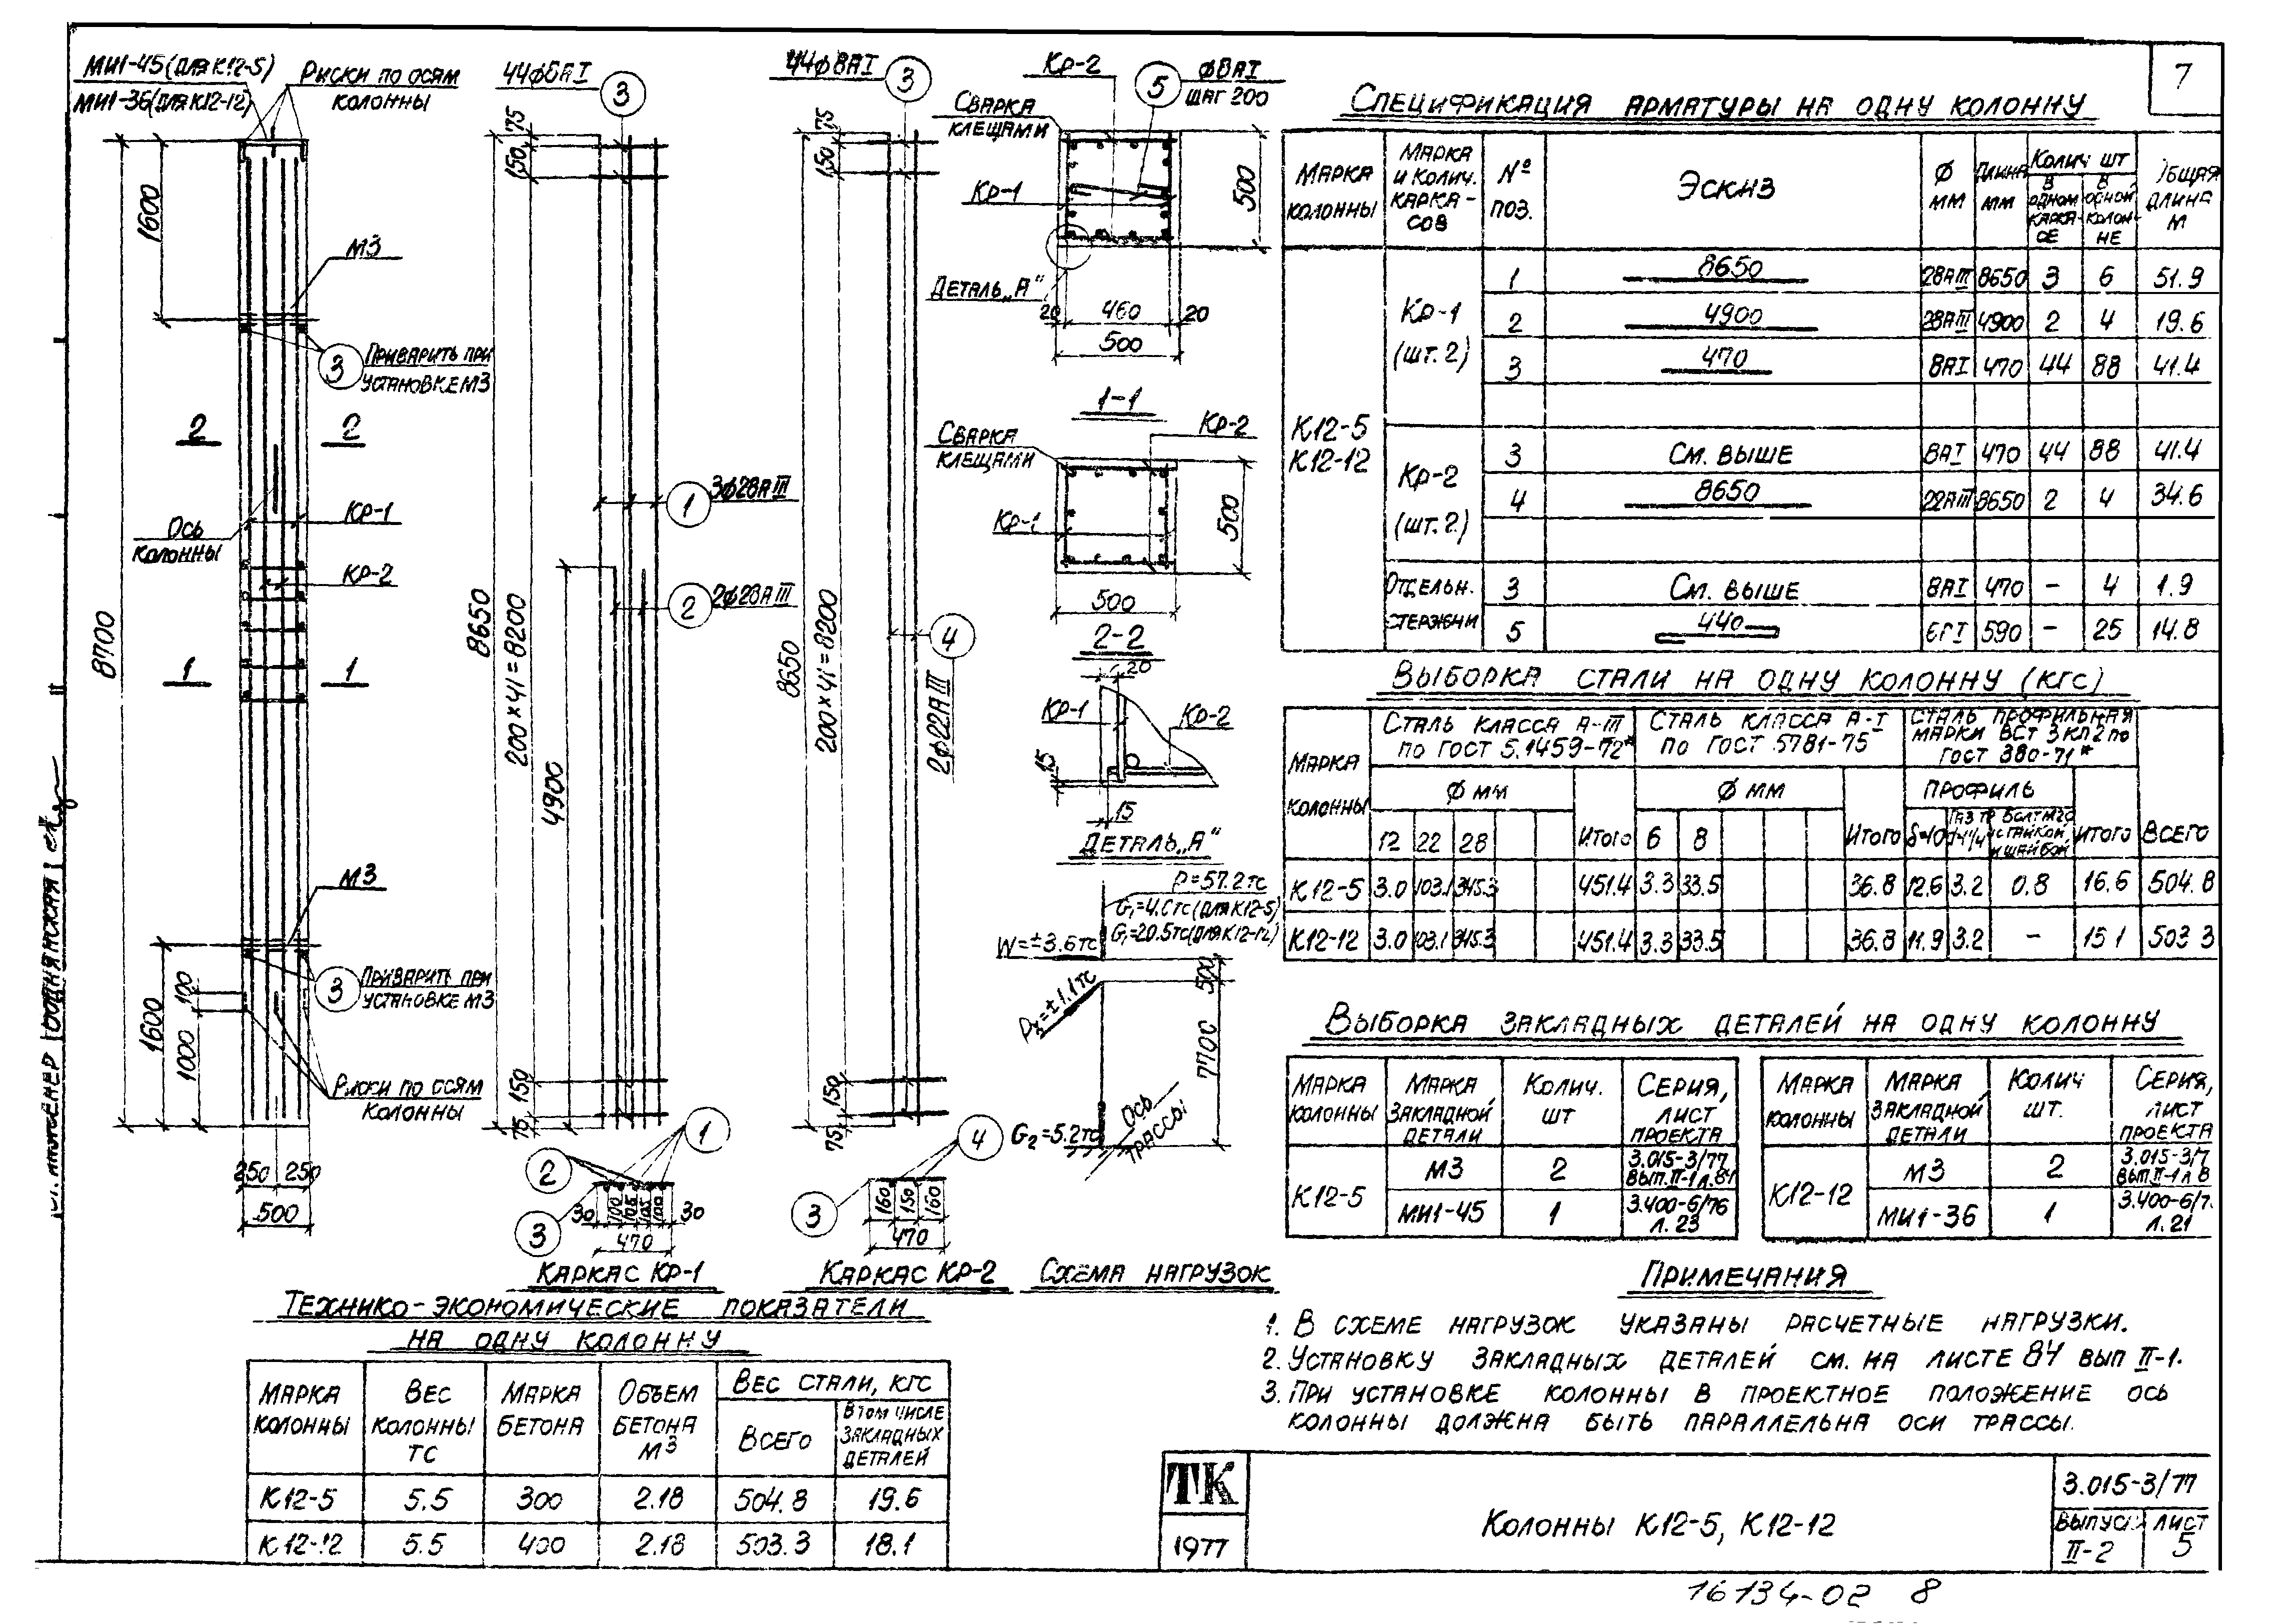 7
МИ1-45 (для К12-5)
МИ1-36 (для К12-12)
Риски по осям
колонны
1600
М3
3
Приварить при
установке М3
2 2
Ось
колонны
Кр-1
Кр-2
8700
1 1
М3
3
Приварить при
установке М3
1600
100
1000
Риски по осям
колонны
250 250
500
44ф8АI
3
75
150
8650
200×41=8200
4900
1
3ф28АIII
2
2ф28АIII
150
75
1
2
3
30 100 105 105 100 30
470
Каркас Кр-1
44ф8АI
3
75
150
8650
200×41=8200
4
2ф22АIII
150
75
4
3
160 150 160
470
Каркас Кр-2
Кр-2
5
ф8АI
шаг 200
Сварка
клещами
Кр-1
500
Деталь „А"
20 460 20
500
1-1
Сварка
клещами
Кр-2
Кр-1
500
500
2-2
20
Кр-1
Кр-2
15
15
Деталь „А"
P=57.2тс
G1=4.0тс (для К12-5)
G1=20.5тс (для К12-12)
W=±3.6тс
500
Px=±1.1тс
7700
G2=5.2тс
Ось
трассы
Схема нагрузок
Спецификация арматуры на одну колонну
Марка колонны | Марка и колич. каркасов | № поз. | Эскиз | ф мм | Длина мм | Колич шт | Общая длина м
в одном каркасе | в одной колонне
К12-5
К12-12
Кр-1 (шт.2)
1 8650 28АIII 8650 3 6 51.9
2 4900 28АIII 4900 2 4 19.6
3 470 8АI 470 44 88 41.4
Кр-2 (шт.2)
3 См. выше 8АI 470 44 88 41.4
4 8650 22АIII 8650 2 4 34.6
Отдельн. стержни
3 См. выше 8АI 470 – 4 1.9
5 440 590 – 25 14.8
Выборка стали на одну колонну (кгс)
Марка колонны
Сталь класса А-III по ГОСТ 5.1459-72*
Сталь класса А-I по ГОСТ 5781-75
Сталь профильная марки ВСт 3кп2 по ГОСТ 380-71*
ф мм ф мм Профиль
12 22 28 Итого 6 8 Итого δ=10 Итого Всего
К12-5 3.0 103.1 345.3 451.4 3.3 33.5 36.8 12.6 3.2 0.8 16.6 504.8
К12-12 3.0 103.1 345.3 451.4 3.3 33.5 36.8 11.9 3.2 – 15 1 503 3
Выборка закладных деталей на одну колонну
Марка колонны | Марка закладной детали | Колич. шт | Серия, лист проекта
К12-5
М3 2 3.015-3/77 вып. II-1 л.84
МИ1-45 1 3.400-6/76 л. 23
Марка колонны | Марка закладной детали | Колич шт. | Серия, лист проекта
К12-12
М3 2 3.015-3/7 вып II-1 л 8
МИ1-36 1 3.400-6/7. л.21
Примечания
1. В схеме нагрузок указаны расчетные нагрузки.
2. Установку закладных деталей см. на листе 84 вып II-1.
3. При установке колонны в проектное положение ось
колонны должна быть параллельна оси трассы.
Технико-экономические показатели
на одну колонну
Марка колонны | Вес колонны тс | Марка бетона | Объем бетона м3 | Вес стали, кгс
Всего | В том числе закладных деталей
К12-5 5.5 300 2.18 504.8 19.6
К12-12 5.5 400 2.18 503.3 18.1
ТК
1977
Колонны К12-5, К12-12
3.015-3/77
Выпуск II-2
Лист 5
16134-02 8